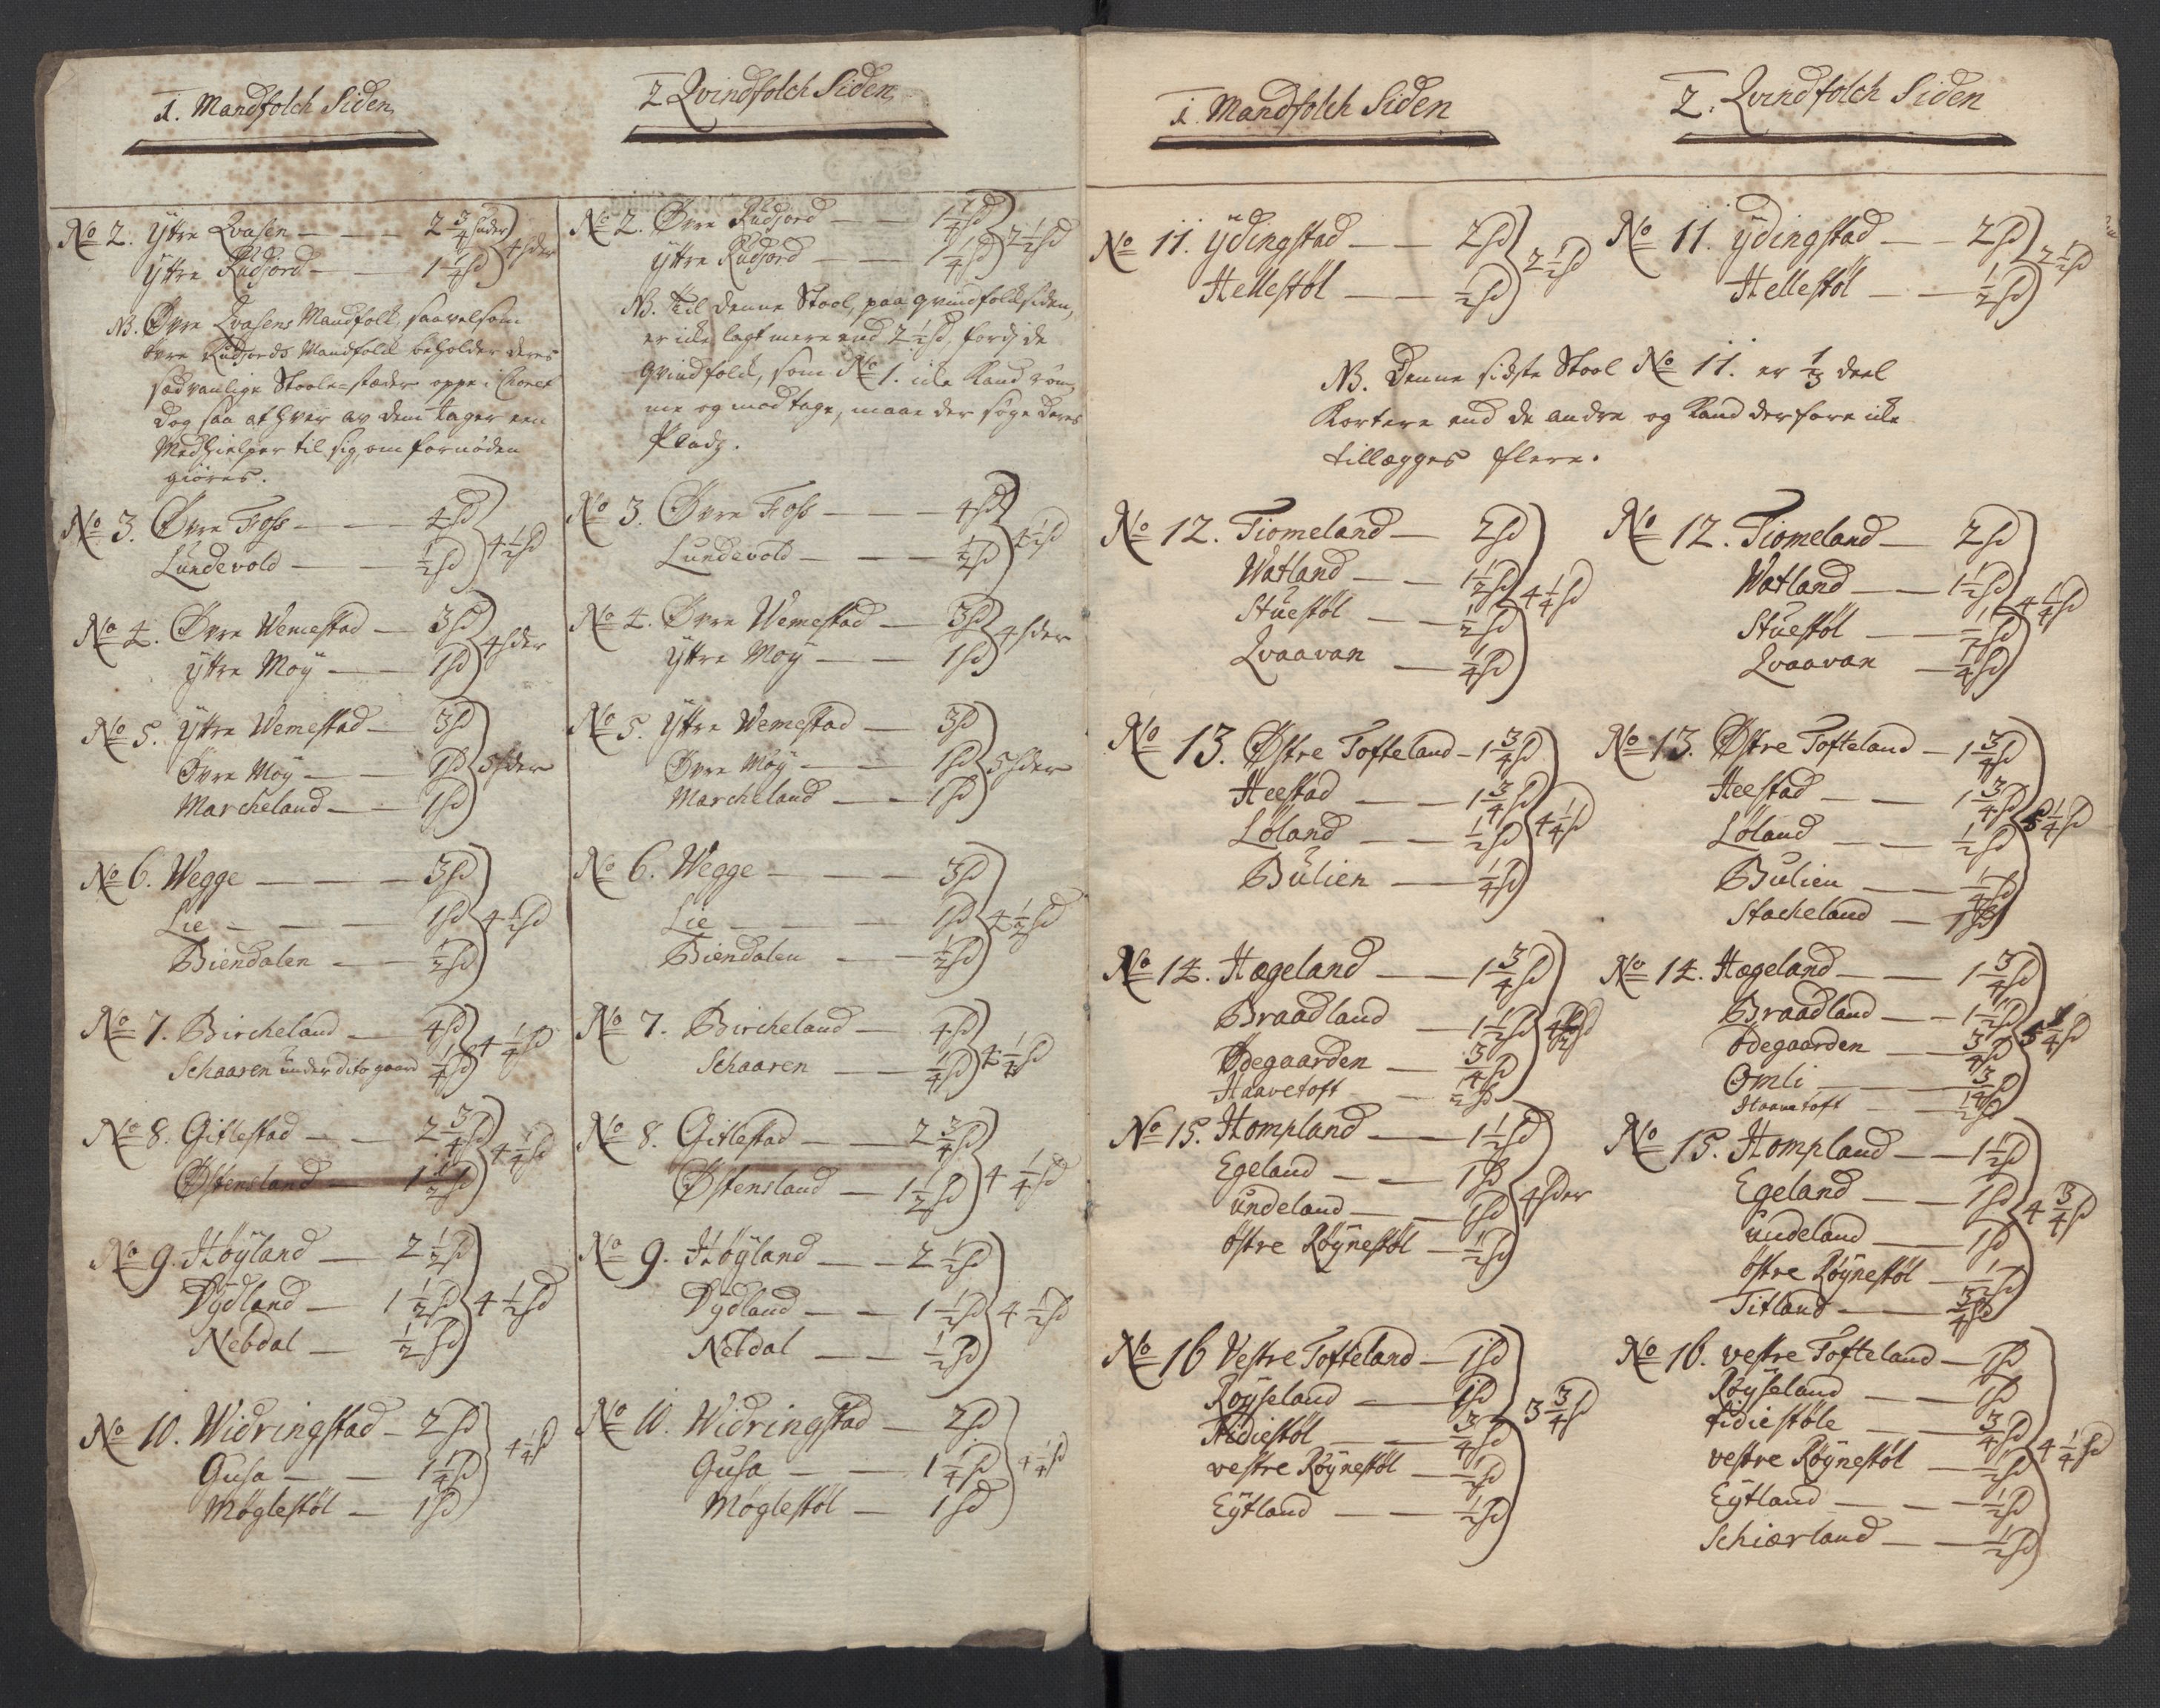 1. Mandfolch Siden
No 2. Yttre Qvasen — — 2 3/4 huder
Yttre Rudjord — — 1 1/4 hd
4 hder
NB. Øvre Qvasens Mandfolk, saavelsom
øvre Rudjords Mandfolk beholder deres
sædvanlige Stoele=stæder oppe i Choret
dog saa at hver av dem tager een
Medhielper til sig, om fornøden
giøres.
No 3. Øvre Foss — — 4 hd
Lundevold — — 1/2 hd
4 1/2 hd
No 4. Øvre Wemestad — 3 hd
yttre Moÿ — — 1 hd
4 hder
No 5. yttre Wemestad — 3 hd
Øvre Moÿ — — 1 hd
Marcheland — — 1 hd
5 hder
No 6. Wegge — — — 3 hd
Lie — — — 1 hd
Biendalen — — 1/2 hd
4 1/2 hd
No 7. Bircheland — 4 hd
Schaaren under dito gaard 1/4 hd
4 1/4 hd
No 8. Gitlestad — — 2 3/4 hd
Østensland — 1 1/2 hd
4 1/4 hd
No 9. Høÿland — 2 1/2 hd
Dÿdland — 1 1/2 hd
Nebdal — 1/2 hd
4 1/2 hd
No 10. Widringstad — 2 hd
Gusa — — 1 1/4 hd
Møglestøl — 1 hd
4 1/4 hd
2 Qvindfolch Siden
No 2. Øvre Rudjord — — 1 1/4 hd
yttre Rudjord — — 1 1/4 hd
2 1/2 hd
NB. Til denne Stool, paa qvindfolksiden,
er icke lagt mere end 2 1/2 hd, fordj de
qvindfolk, som No 1. icke kand røm,
me og modtage, maae der søge deres
Pladz.
No 3. Øvre Foss — — — 4 hd
Lundevold — — — 1/2 hd
4 1/2 hd
No 4. Øvre Wemestad — 3 hd
yttre Moÿ — — 1 hd
4 hder
No 5. yttre Wemestad — 3 hd
Øvre Møÿ — — 1 hd
Marcheland — — 1 hd
5 hder
No 6. Wegge — — — 3 hd
Lie — — — 1 hd
Biendalen — — 1/2 hd
4 1/2 hd
No 7. Bircheland — 4 hd
Schaaren — — 1/4 hd
4 1/4 hd
No 8. Gitlestad — — 2 3/4 hd
Østensland — 1 1/2 hd
4 1/4 hd
No 9. Høÿland — — 2 1/2 hd
Dÿdland — — 1 1/2 hd
Nebdal — — 1/2 hd
4 1/2 hd
No 10. Widringstad — 2 hd
Gusa — — 1 1/4 hd
Møglestøl — 1 hd
4 1/4 hd
1. Mandfolch Siden
2. Qvindfolch Siden
No 11. ÿdingstad — — 2 hd
Hellestøl — — 1/2 hd
2 1/2 hd
No 11. ÿdingstad — — 2 hd
Hellestøl — — 1/2 hd
2 1/2 hd
NB. Denne sidste Stool No 11. er 1/3 deel
kortere end de andre og kand derfore icke
tillægges flere.
No 12. Tiomeland — 2 hd
Watland — — 1 1/2 hd
Stuestøl — — 1/2 hd
Qvaavan — 1/4 hd
4 1/4 hd
No 13. Østre Tofteland — 1 3/4 hd
Heestad — — 1 3/4 hd
Løland — — 1/2 hd
Bulien — — 1/4 hd
4 1/4 hd
No 14. Hægeland — — 1 3/4 hd
Braadland — 1 1/2 hd
Ødegaarden — 3/4 hd
Haavetoft — 1/2 hd
No 15. Hompland — — 1 1/2 hd
Egeland — — 1 hd
undeland — — 1 hd
østre Røÿnestøl — 1/2 hd
4 hder
No 16 Vestre Tofteland — 1 hd
Røÿseland — — 1 hd
Hidiestøl — — 3/4 hd
vestre Røÿnestøl — 1/2 hd
Eÿtland — — 1/2 hd
3 3/4 hd
No 12. Tiomeland — 2 hd
Watland — — 1 1/2 hd
Stuestøl — — 1/2 hd
Qvaavan — 1/4 hd
4 1/4 hd
No 13. Østre Tofteland — 1 3/4 hd
Heestad — — 1 3/4 hd
Løland — — 1/2 hd
Bulien — — 1/4 hd
Stacheland — 1 hd
5 1/4 hd
No 14. Hægeland — — 1 3/4 hd
Braadland — — 1 1/2 hd
Ødegaarden — 3/4 hd
Omli — — 3/4 hd
Haavetoft — — 1/2 hd
No 15. Hompland — — 1 1/2 hd
Egeland — — 1 hd
undeland — — 1 hd
østre Røÿnestøl — 1/2 hd
Titland — — 3/4 hd
4 3/4 hd
No 16. vestre Tofteland — 1 hd
Røÿseland — — 1 hd
hidiestøle — — 3/4 hd
vestre Røÿnestøl — 1/2 hd
Eÿtland — — — 1/2 hd
Schiærland — — 1/2 hd
4 1/4 hd